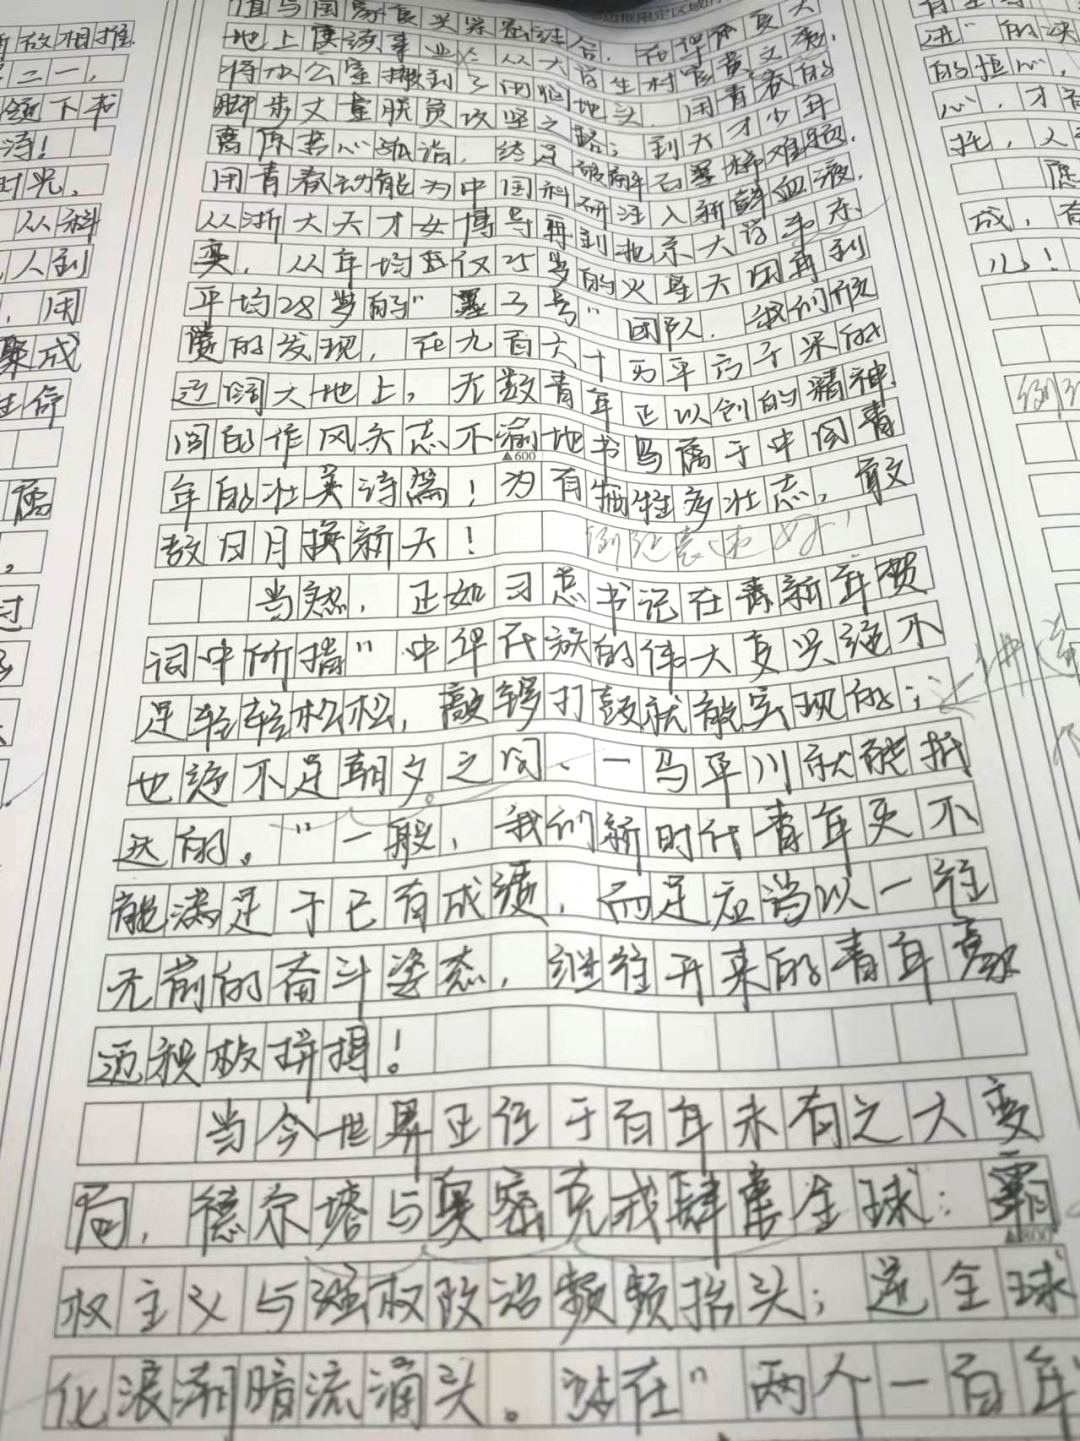 值与国家复兴紧密结合，在中华复兴大
地上续谱事业，从大学生村官黄文秀，
将办公室搬到了田间地头，用青春的
脚步丈量脱贫攻坚之路；到天才少年
曹原苦心孤诣，终是破解石墨烯难题，
用青春动能为中国科研注入新鲜血液，
从浙大天才女博导再到北京大学韦东
奕，从年均龄仅25岁的火星天团再到
平均28岁的"墨子号"团队，我们欣
慰的发现，在九百六十万平方千米的
辽阔大地上，无数青年正以创的精神
闯的作风矢志不渝地书写属于中国青
年的壮美诗篇！为有牺牲多壮志，敢
教日月换新天！
例证表述好！
当然，正如习总书记在春新年贺
词中所指"中华民族的伟大复兴绝不
是轻轻松松，敲锣打鼓就能实现的；
也绝不是朝夕之间、一马平川就能抵
达的。"一般，我们新时代青年更不
能满足于已有成绩，而是应当以一往
无前的奋斗姿态，继往开来的青年豪
迈积极拼搏！
当今世界正往于百年未有之大变
局，德尔塔与奥密克戎肆虐全球；霸
权主义与强权政治频频抬头；逆全球
化浪潮暗流涌头。站在"两个一百年
▲600
▲800
敌相推
二一，
领下书
涛！
时光，
从科
人到
，用
聚成
生命
进"的决
的恒心，
心，才
托，人
愿
成，有
儿！